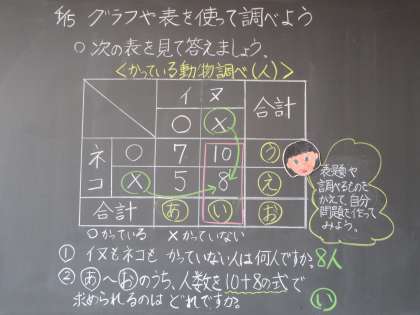 4/15 グラフや表を使って調べよう
○次の表を見て答えましょう。
<かっている動物調べ(人)>
イヌ 合計
○ ×
ネコ ○ 7 10 ⓤ
× 5 8 え
合計 あ い お
○かっている ×かっていない
表題や
調べるものを
かえて、自分
問題を作って
みよう。
① イヌもネコもかっていない人は何人ですか。8人
② あ〜おのうち、人数を10+8の式で
求められるのはどれですか。 い